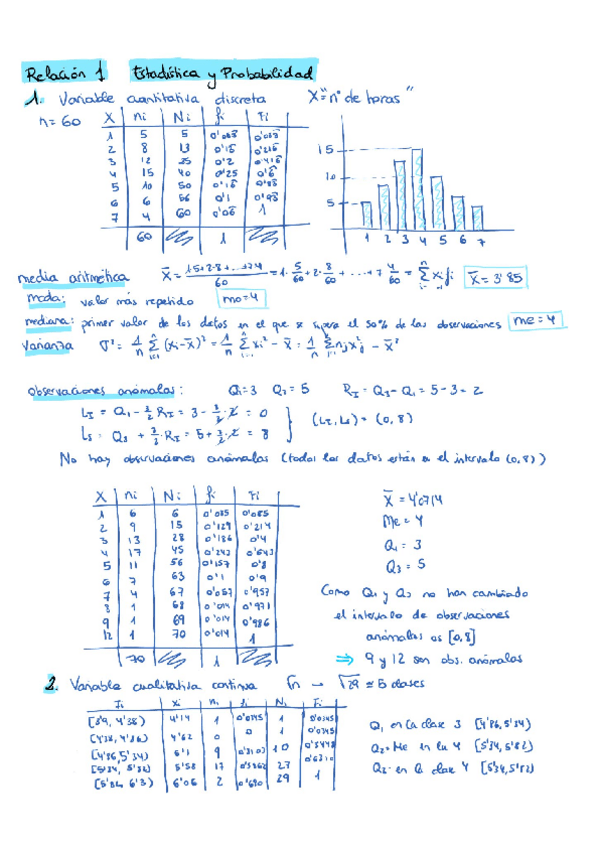 Relación 1 Estadística y Probabilidad
1. Variable cuantitativa discreta X="nº de horas"
n=60 X ni Ni fi Fi
1 5 5 0'083 0'083
2 8 13 0'13 0'216
3 12 25 0'2 0'416
4 15 40 0'25 0'6
5 10 50 0'16 0'83
6 6 56 0'1 0'93
7 4 60 0'06 1
60 1
15
10
5
1 2 3 4 5 6 7
media aritmética X = 1·5+2·8+...+7·4 / 60 = 1· 5/60 + 2· 8/60 + ... + 7 4/60 = Σ xi fi X = 3'85
moda: valor más repetido mo=4
mediana: primer valor de los datos en el que se supera el 50% de las observaciones me=4
Varianza
observaciones anómalas: Q1=3 Q3=5 RI = Q3-Q1 = 5-3 = 2
LI = Q1 - 3/2 RI = 3 - 3/2·2 = 0
Ls = Q3 + 3/2 RI = 5 + 3/2·2 = 8
(LI, Ls) = (0, 8)
No hay observaciones anómalas (todos los datos están en el intervalo (0,8))
X ni Ni fi Fi
1 6 6 0'085 0'085
2 9 15 0'129 0'214
3 13 28 0'186 0'4
4 17 45 0'243 0'643
5 11 56 0'157 0'8
6 7 63 0'1 0'9
7 4 67 0'057 0'957
8 1 68 0'014 0'971
9 1 69 0'014 0'986
12 1 70 0'014 1
70 1
X = 4'0714
Me = 4
Q1 = 3
Q3 = 5
Como Q1 y Q3 no han cambiado
el intervalo de observaciones
anómalas es [0,8]
⇒ 9 y 12 son obs. anómalas
2. Variable cualitativa continua √n → √29 ≃ 5 clases
Ii xi ni fi Ni Fi
[3'9, 4'38) 4'14 1 0'0345 1 0'0345
[4'38, 4'86) 4'62 0 0 1 0'0345
[4'86, 5'34) 5'1 9 0'3103 10 0'3448
[5'34, 5'82) 5'58 17 0'5862 27
[5'82, 6'3) 6'06 2 0'690 29 1
Q1 en la clase 3 [4'86, 5'34)
Q2=Me en la 4 [5'34, 5'82)
Q2 en la clase 4 [5'34, 5'82)